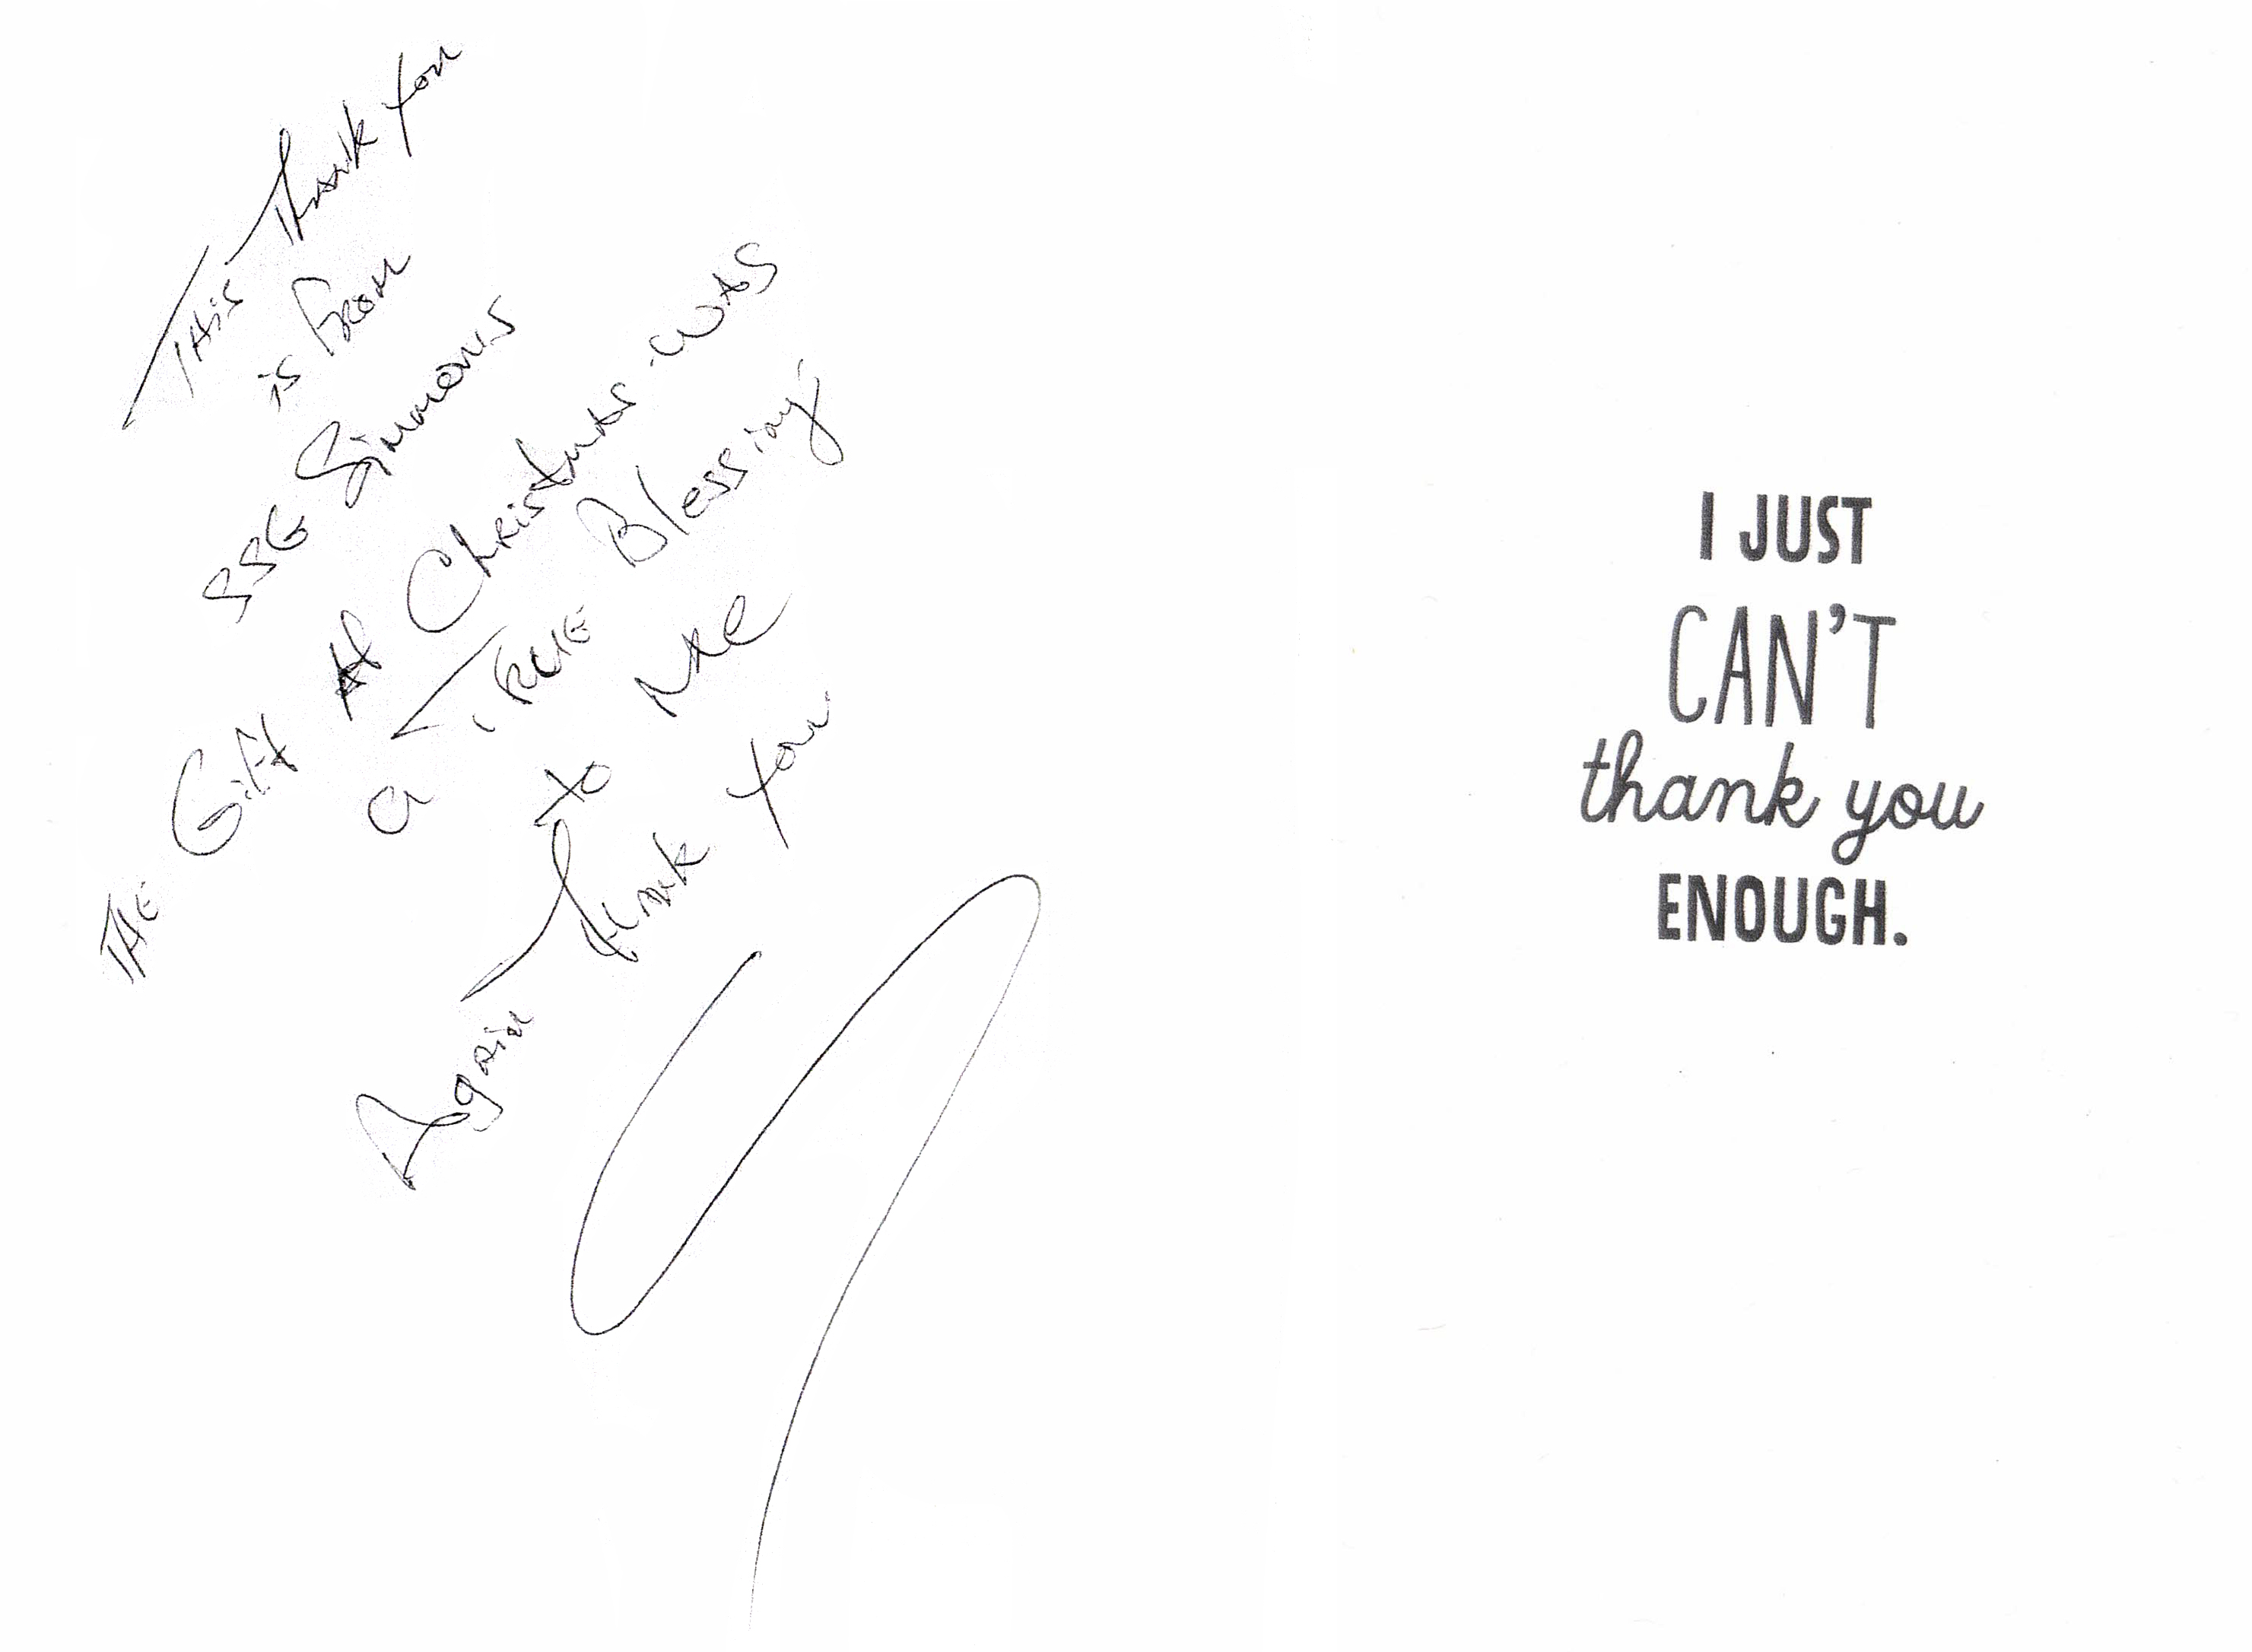 This Thank You
is From
SSG Simmons
THE Gift At Christmas was
a TRUE Blessing
to me
Again Thank You
I JUST
CAN'T
thank you
ENOUGH.